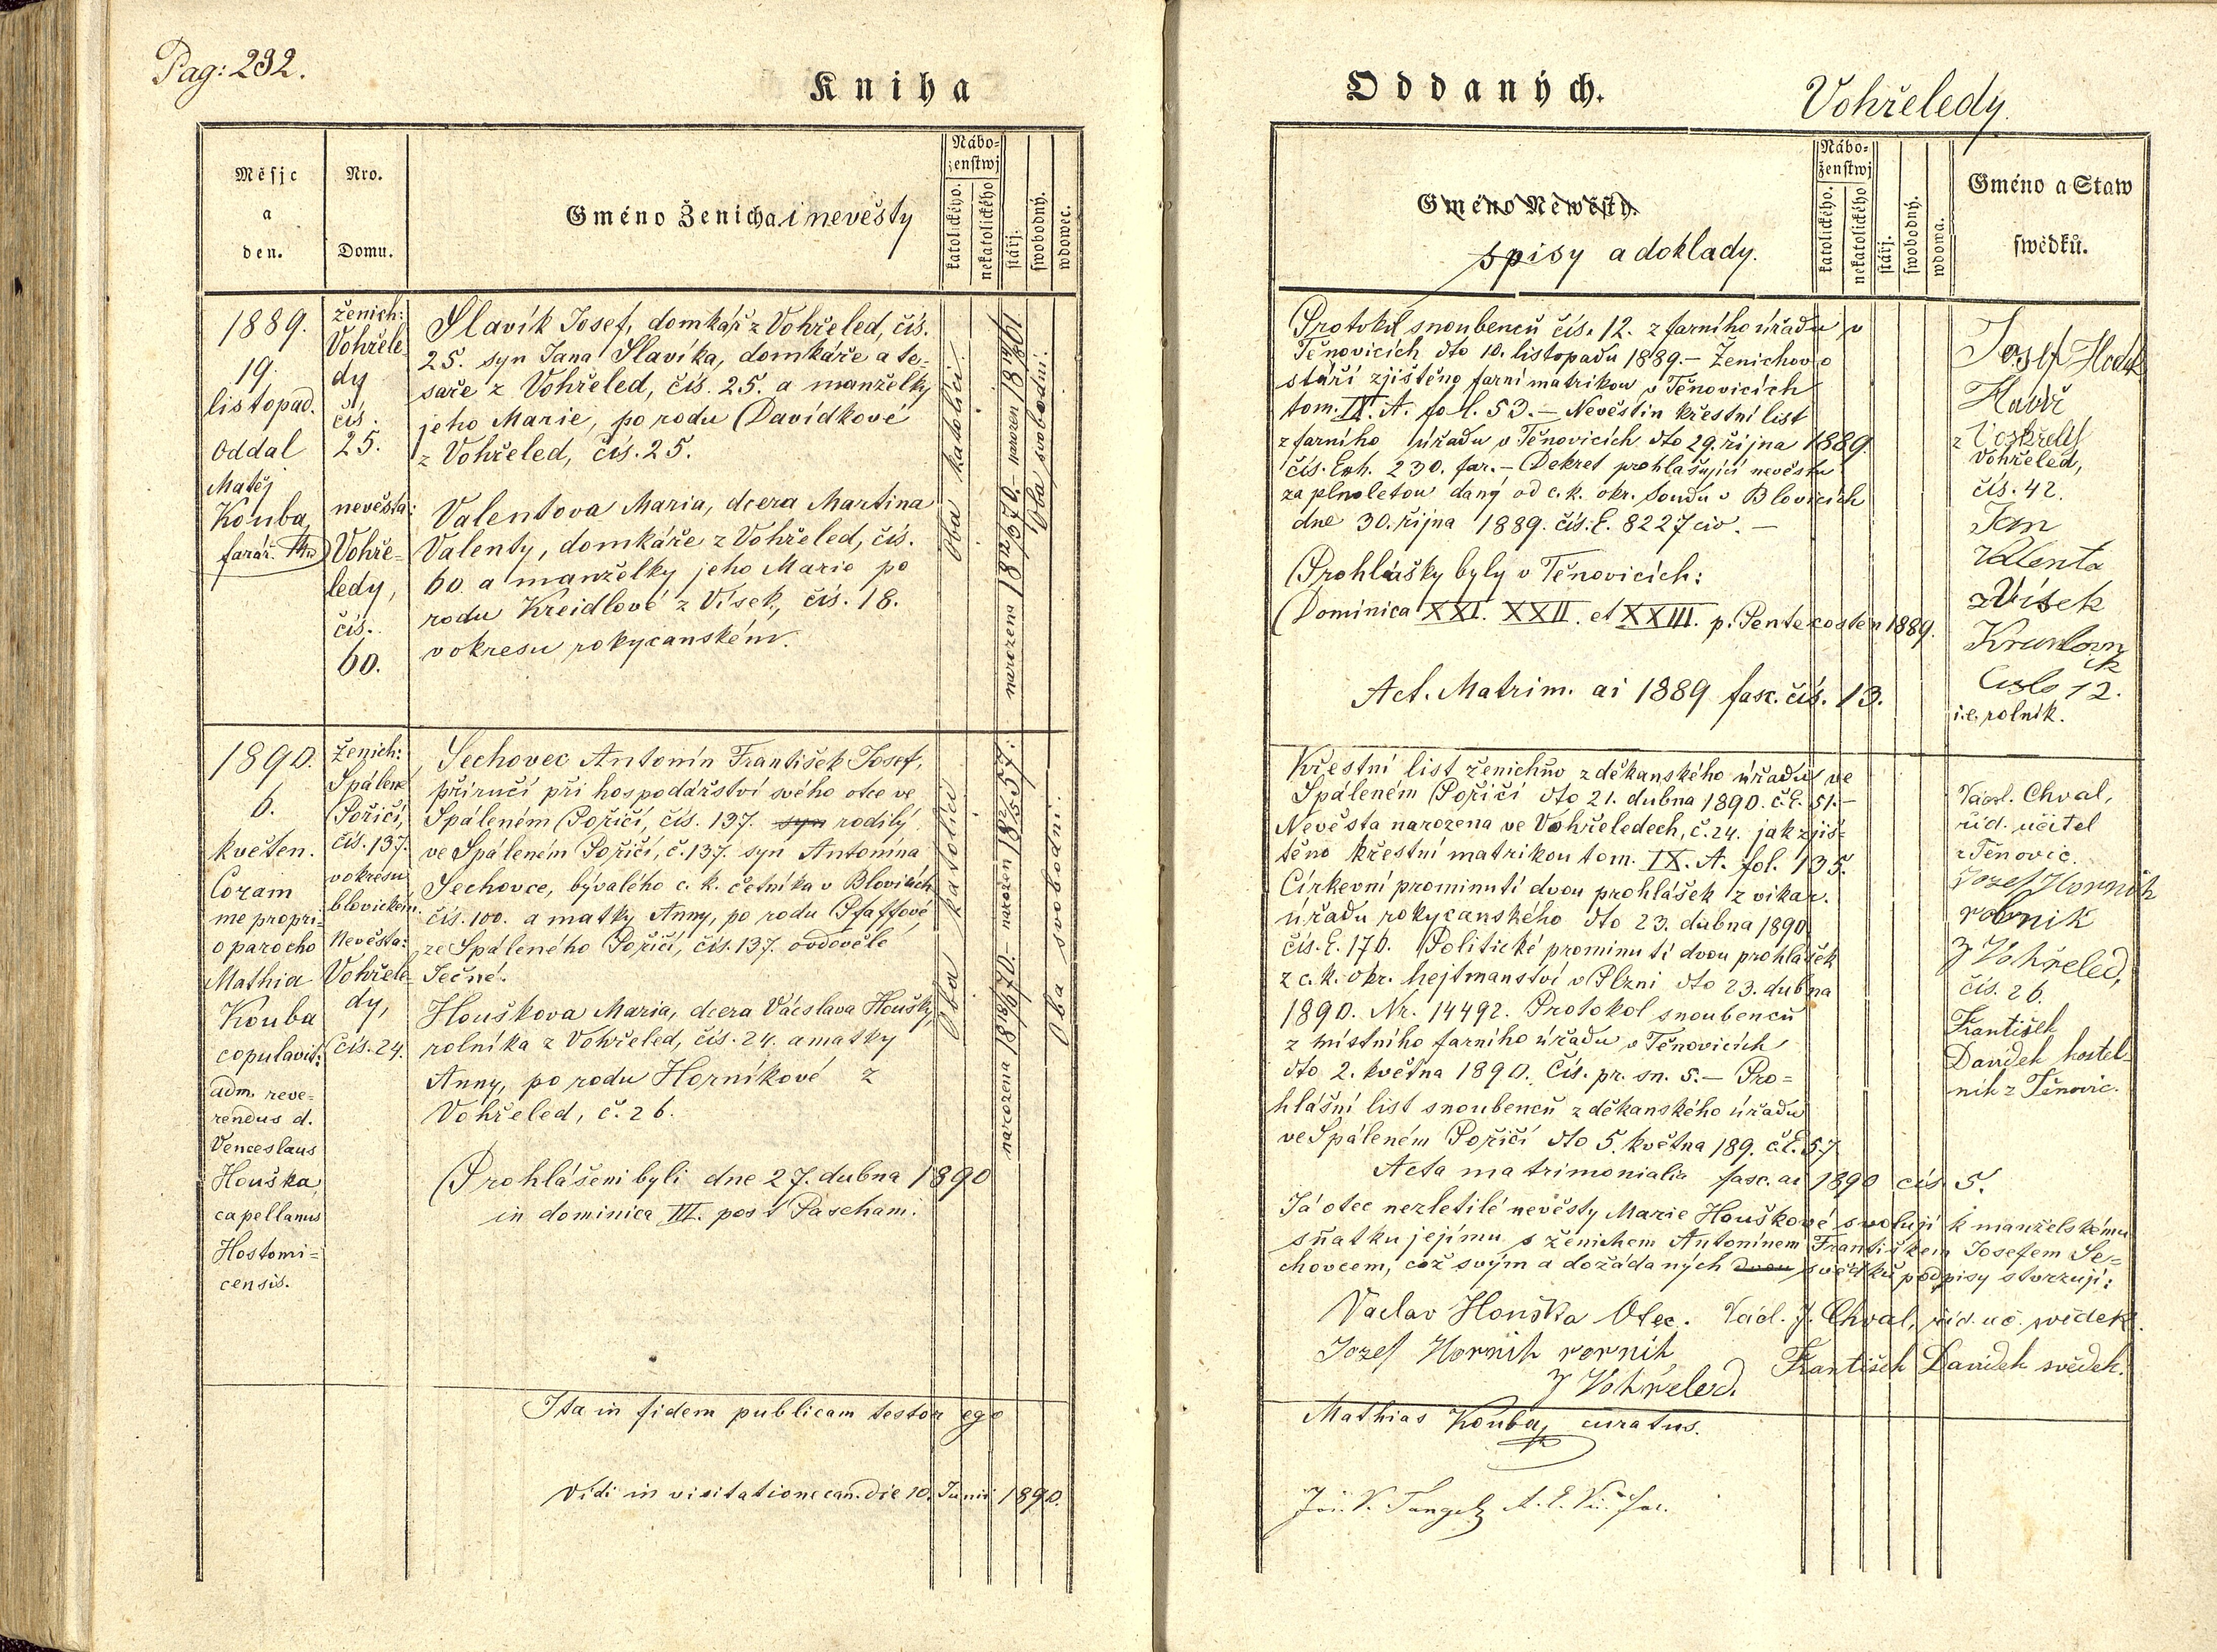 Pag: 232.
Kniha
Oddaných.
Vohřeledy.
Měsjc
a
den.
Nro.
Domu.
Gméno Ženicha i nevěsty
Nábo=
ženstwj
katolického.
nekatolického
stářj.
swobodný.
wdowec.
Gméno Newěsty.
spisy a doklady.
Nábo=
ženstwj
katolického.
nekatolického
stářj.
swobodný.
wdowa.
Gméno a Staw
swědků.
1889.
19.
listopad.
Oddal
Matěj
Kouba,
farář.
ženich:
Vohřele
dy
čís.
25.
nevěsta:
Vohře=
ledy,
čís.
60.
Slavík Josef, domkář z Vohřeled, čís.
25. syn Jana Slavíka, domkáře a te-
saře z Vohřeled, čís. 25. a manželky
jeho Marie, po rodu Davídkové
z Vohřeled, čís. 25.
Valentova Maria, dcera Martina
Valenty, domkáře z Vohřeled, čís.
60. a manželky jeho Marie po
rodu Kreidlové z Vísek, čís. 18.
v okresu rokycanském.
Oba katolíci.
Oba svobodni.
Protokol snoubenců čís. 12. z farního úřadu v
Těnovicích dto 10. listopadu 1889. – Ženichovo
stáří zjištěno farní matrikou v Těnovicích
tom. IX. A. fol. 53. – Nevěstin křestní list
z farního úřadu v Těnovicích dto 29. října 1889.
čís. Exh. 230. far. – Dekret prohlašující nevěstu
za plnoletou daný od c. k. okr. soudu v Blovicích
dne 30. října 1889. čís. E. 8227 civ. –
Prohlášky byly v Těnovicích:
Dominica XXI. XXII. et XXIII. p. Pentecosten 1889.
Act. Matrim. ai 1889 fasc. čís. 13.
Josef
z
Vohřeled,
čís. 42.
Jan
Valenta
z Vísek
Číslo 12.
i.e. rolník.
1890.
6.
květen.
Coram
me propri=
o parocho
Mathia
Kouba
copulavit:
adm. reve=
rendus d.
Venceslaus
Houška,
capellanus
Hostomi=
censis.
Ženich:
Spálené
Poříčí,
čís. 137.
v okresu
blovickém.
Nevěsta:
Vohřele
dy,
čís. 24.
Sechovec Antonín František Josef,
příručí při hospodářství svého otce ve
Spáleném Poříčí, čís. 137. syn rodilý
ve Spáleném Poříčí, č. 137. syn Antonína
Sechovce, bývalého c. k. četníka v Blovicích
čís. 100. a matky Anny, po rodu Pfaffové,
ze Spáleného Poříčí, čís. 137. ovdovělé
Ječné.
Houškova Maria, dcera Václava Houšky,
rolníka z Vohřeled, čís. 24. a matky
Anny, po rodu Horníkové z
Vohřeled, č. 26.
Prohlášeni byli dne 27. dubna 1890
in dominica III. post Pascham.
Oba katolíci
Oba svobodni.
Křestní list ženichův z děkanského úřadu ve
Spáleném Poříčí dto 21. dubna 1890. č. E. 51. –
Nevěsta narozena ve Vohřeledech, č. 24. jak zjiš=
těno křestní matrikou tom. IX. A. fol. 135.
Církevní prominutí dvou prohlášek z vikar.
úřadu rokycanského dto 23. dubna 1890.
čís. E. 176. Politické prominutí dvou prohlášek
z c. k. okr. hejtmanství v Plzni dto 23. dubna
1890. Nr. 14492. Protokol snoubenců
z místního farního úřadu v Těnovicích
dto 2. května 1890. Čís. pr. sn. 5. – Pro=
hlášní list snoubenců z děkanského úřadu
ve Spáleném Poříčí dto 5. května 189. č. E. 57.
Acta matrimonialia fasc. ai 1890 čís 5.
Já otec nezletilé nevěsty Marie Houškové svoluji k manželskému
sňatku jejímu s ženichem Antonínem Františkem Josefem Se=
chovcem, což svým a dožádaných dvou svědků podpisy stvrzuji:
Vaclav Houška Otec. Václ. J. Chval, říd. uč. svědek.
Jozef Hornik rornik
z Vohřeled.
František Davidek svědek.
Vácsl. Chval,
říd. učitel
z Těnovic.
Jozef Hornik
rolnik
z Vohřeled,
čís. 26.
František
Davidek kostel-
nik z Těnovic.
Ita in fidem publicam testor ego
Mathias Kouba, curatus.
Vidi in visitatione can. die 10. Junii 1890.